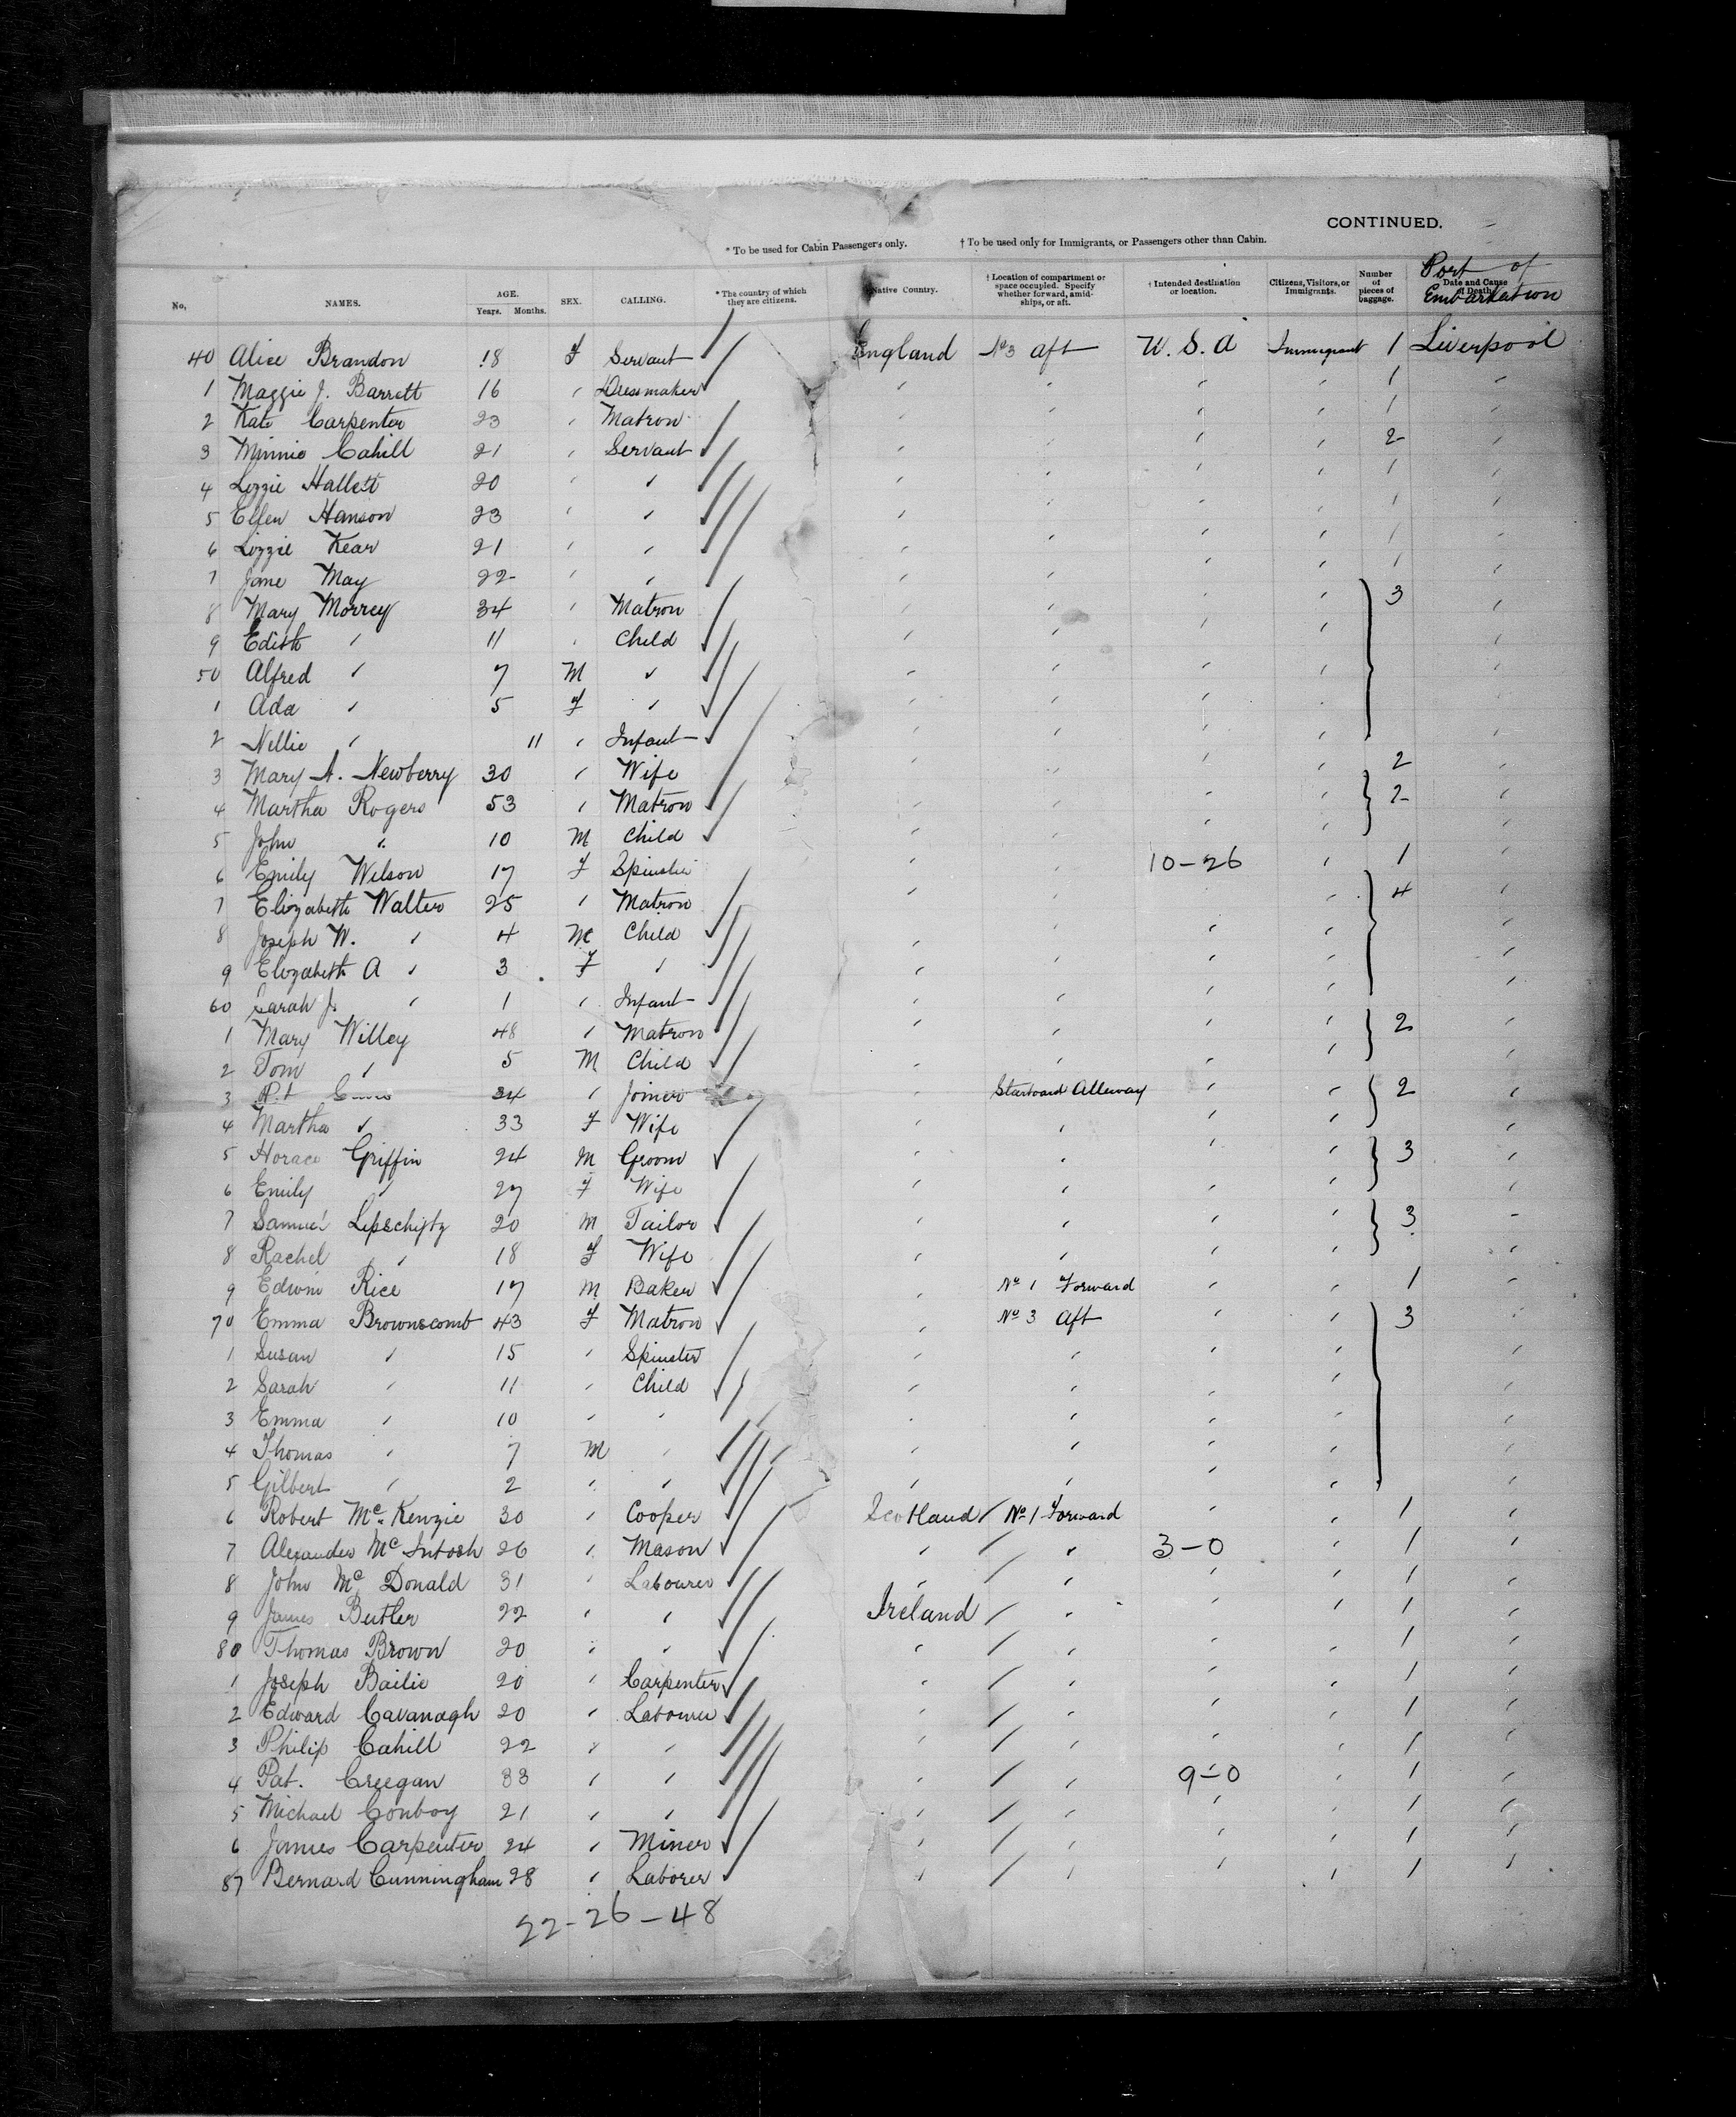 CONTINUED.
* To be used for Cabin Passengers only. † To be used only for Immigrants, or Passengers other than Cabin.
No. NAMES. AGE. Years. Months. SEX. CALLING. * The country of which they are citizens. Native Country. † Location of compartment or space occupied. Specify whether forward, amidships, or aft. † Intended destination or location. Citizens, Visitors, or Immigrants. Number of pieces of baggage. Date and Cause of Death. Port of Embarkation
40 Alice Brandon 18 F Servant England No 3 aft U.S.A Immigrant 1 Liverpool
1 Maggie J. Barrett 16 " Dressmaker " " " " 1 "
2 Kate Carpenter 23 " Matron " " " " 1 "
3 Minnie Cahill 21 " Servant " " " " 2 "
4 Lizzie Hallett 20 " " " " " " 1 "
5 Ellen Hanson 23 " " " " " " 1 "
6 Lizzie Kear 21 " " " " " " 1 "
7 Jane May 22 " " " " " " 1 "
8 Mary Morrey 34 " Matron " " " " 3 "
9 Edith " 11 " Child " " " " "
50 Alfred " 7 M " " " " " "
1 Ada " 5 F " " " " " "
2 Nellie " 11 " Infant " " " " "
3 Mary A. Newberry 30 " Wife " " " " 2 "
4 Martha Rogers 53 " Matron " " " " 2 "
5 John " 10 M Child " " " " "
6 Emily Wilson 17 F Spinster " " 10-26 " 1 "
7 Elizabeth Walter 25 " Matron " " " 4 "
8 Joseph W. " 4 M Child " " " " "
9 Elizabeth A " 3 F " " " " " "
60 Sarah J. " 1 " Infant " " " " "
1 Mary Willey 48 " Matron " " " " 2 "
2 Tom " 5 M Child " " " " "
3 34 " Joiner " Starboard Alleway " " 2 "
4 Martha " 33 F Wife " " " " "
5 Horace Griffin 24 M Groom " " " " 3 "
6 Emily " 27 F Wife " " " " "
7 Samuel Lipschijtz 20 M Tailor " " " " 3 "
8 Rachel " 18 F Wife " " " " "
9 Edwin Rice 17 M Baker " No 1 Forward " " 1 "
70 Emma Brownscomb 43 F Matron " No 3 Aft " " 3 "
1 Susan " 15 " Spinster " " " " "
2 Sarah " 11 " Child " " " " "
3 Emma " 10 " " " " " " "
4 Thomas " 7 M " " " " " "
5 Gilbert " 2 " " " " " " "
6 Robert McKenzie 30 " Cooper Scotland No 1 Forward " " 1 "
7 Alexander McIntosh 26 " Mason " " 3-0 " 1 "
8 John McDonald 31 " Labourer " " " " 1 "
9 James Butler 22 " " Ireland " " " 1 "
80 Thomas Brown 20 " " " " " " 1 "
1 Joseph Bailie 20 " Carpenter " " " " 1 "
2 Edward Cavanagh 20 " Labourer " " " " 1 "
3 Philip Cahill 22 " " " " " " 1 "
4 Pat. Creegan 33 " " " " 9-0 " 1 "
5 Michael Conboy 21 " " " " " " 1 "
6 James Carpenter 24 " Miner " " " " 1 "
87 Bernard Cunningham 28 " Laborer " " " " 1 "
22-26-48